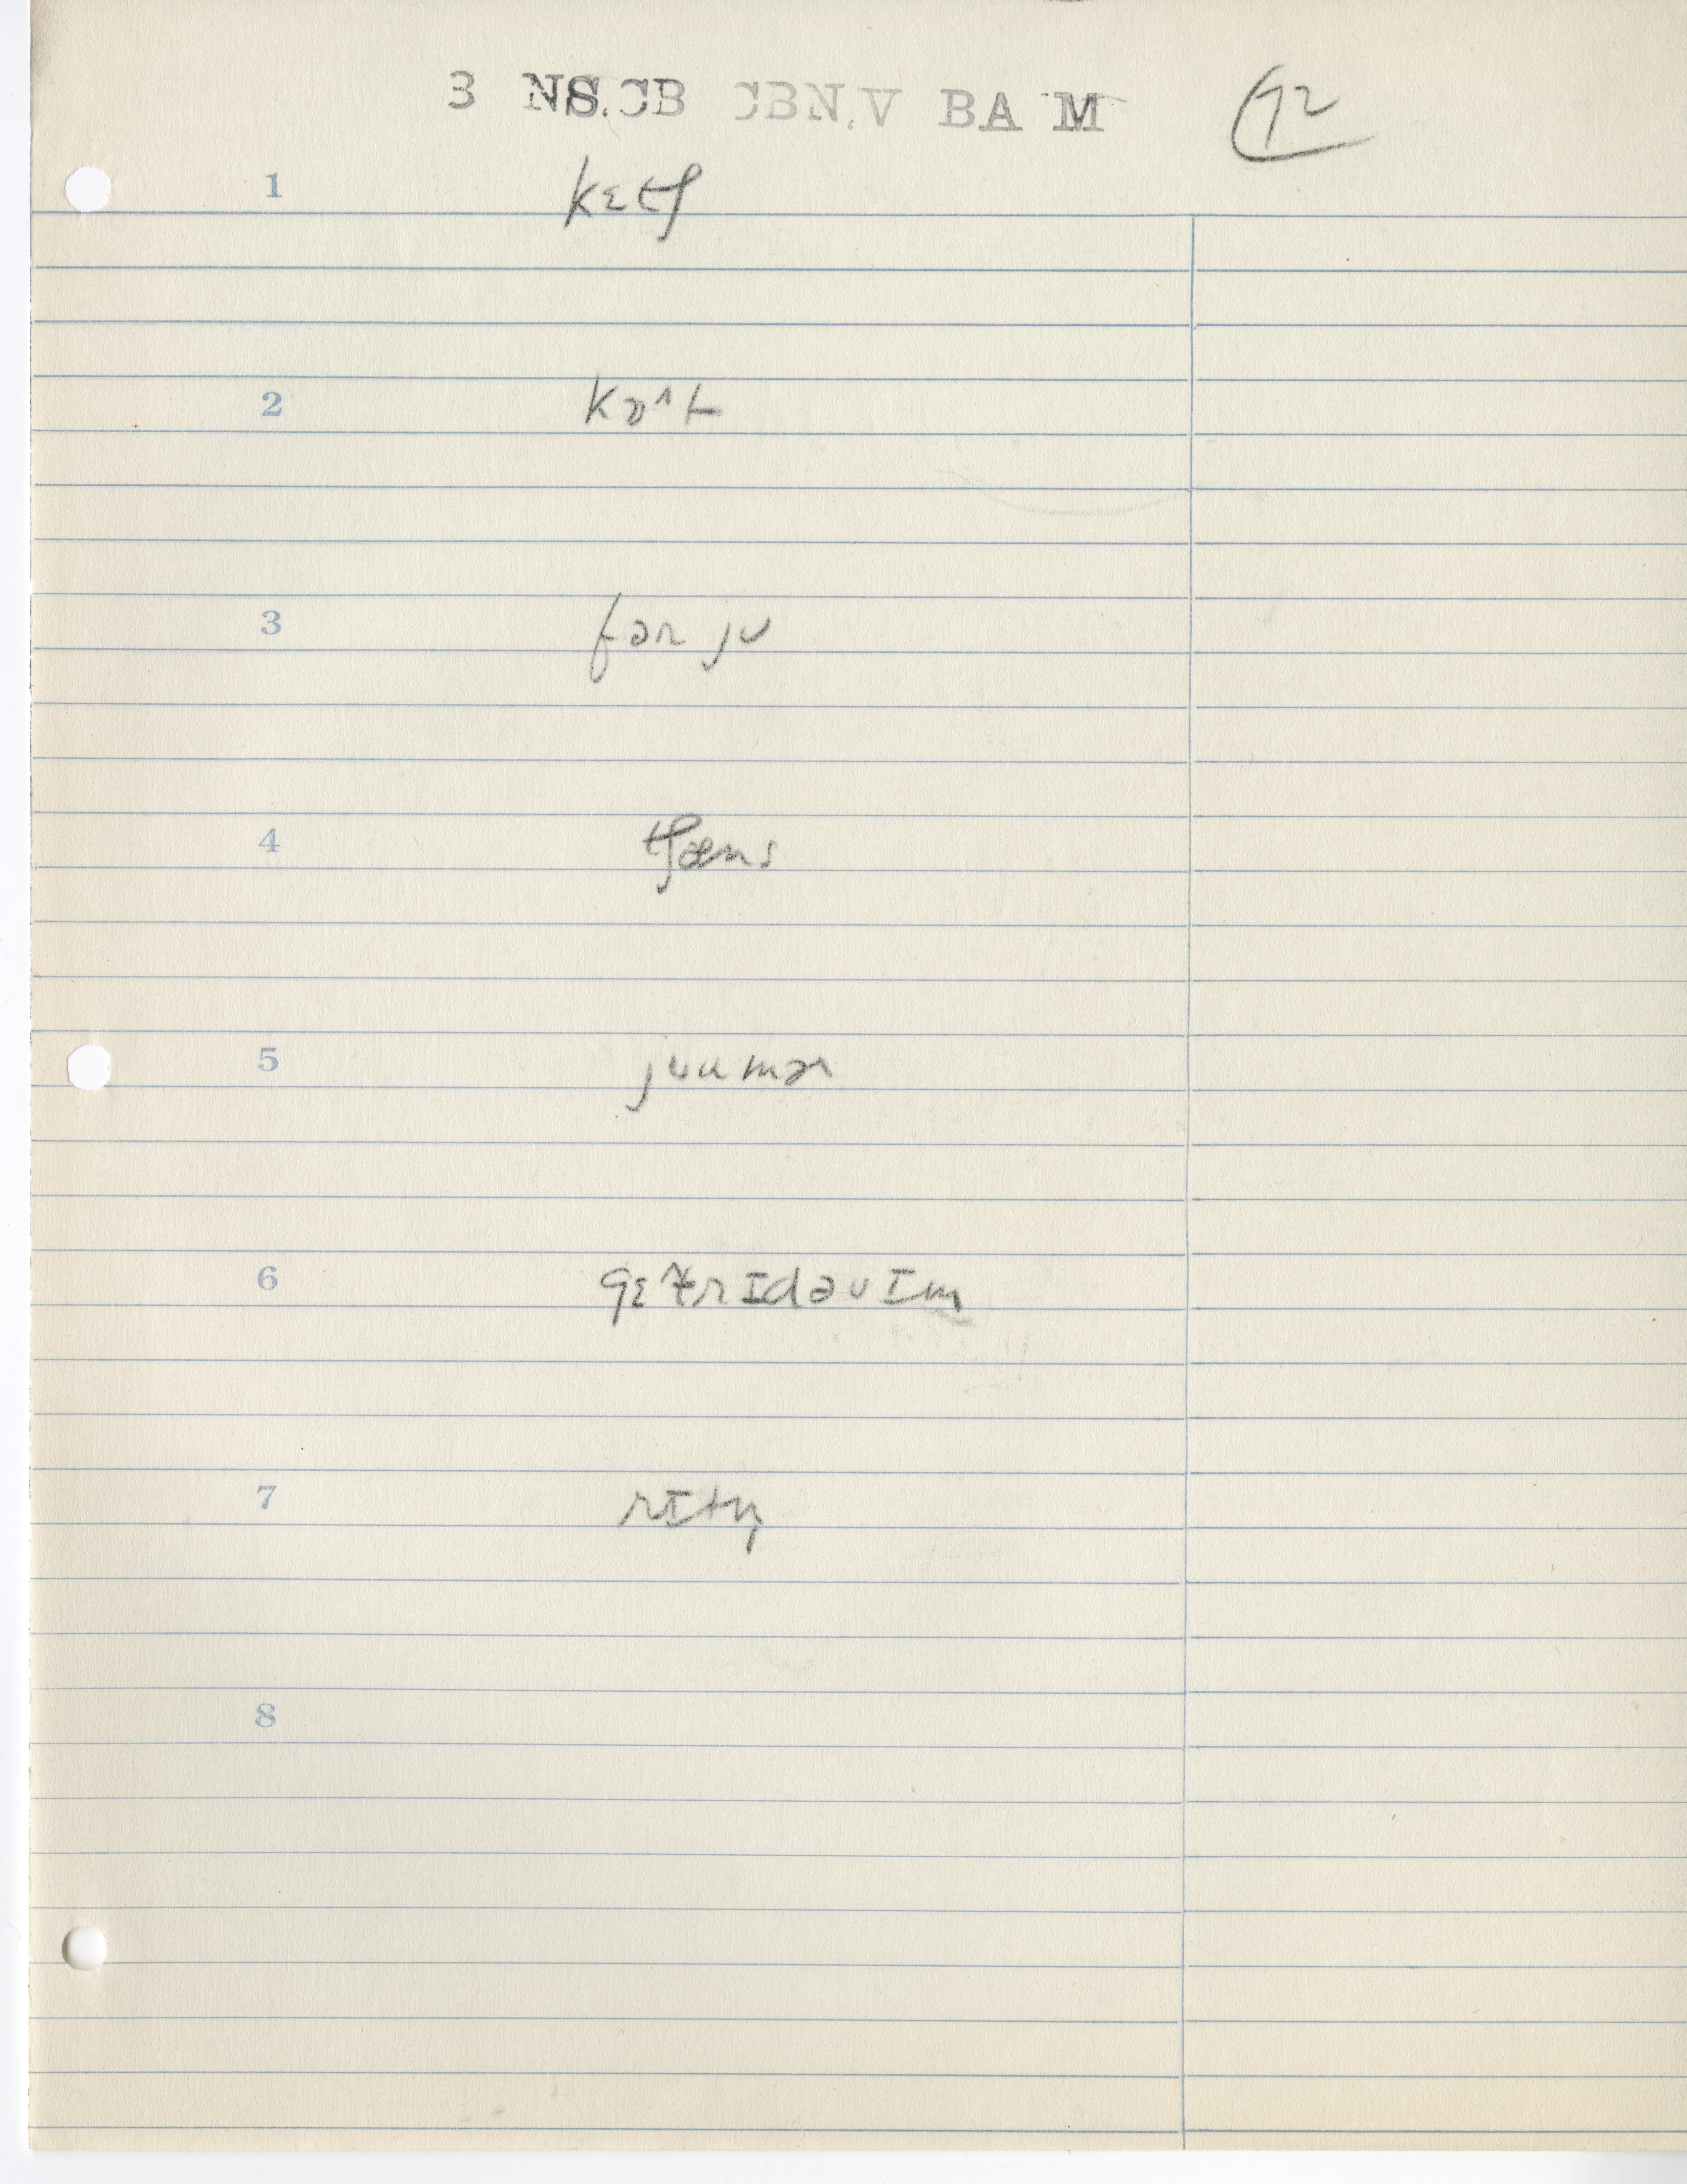 3 NS.CB CBN.V BA M 92
1 kɛtʃ
2 kɒ^t
3 fər ju
4 tʃæns
5 jʊumər
6 gɛt̬rɪdəvɪm
7 rɪtn̩
8